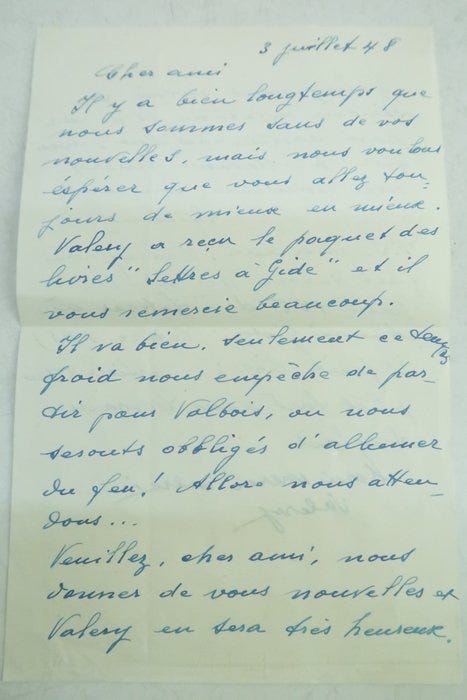 3 juillet 48
Cher ami
Il y a bien longtemps que
nous sommes sans de vos
nouvelles, mais nous voulons
éspérer que vous allez tou-
jours de mieux en mieux.
Valery a reçu le paquet des
livres "Lettres à Gide" et il
vous remercie beaucoup.
Il va bien, seulement ce temps
froid nous empêche de par-
tir pour Valbois, ou nous
serons obbligés d'allumer
du feu! Allors nous atten-
dons...
Veuillez, cher ami, nous
donner de vous nouvelles et
Valery en sera très heureux.
Valery